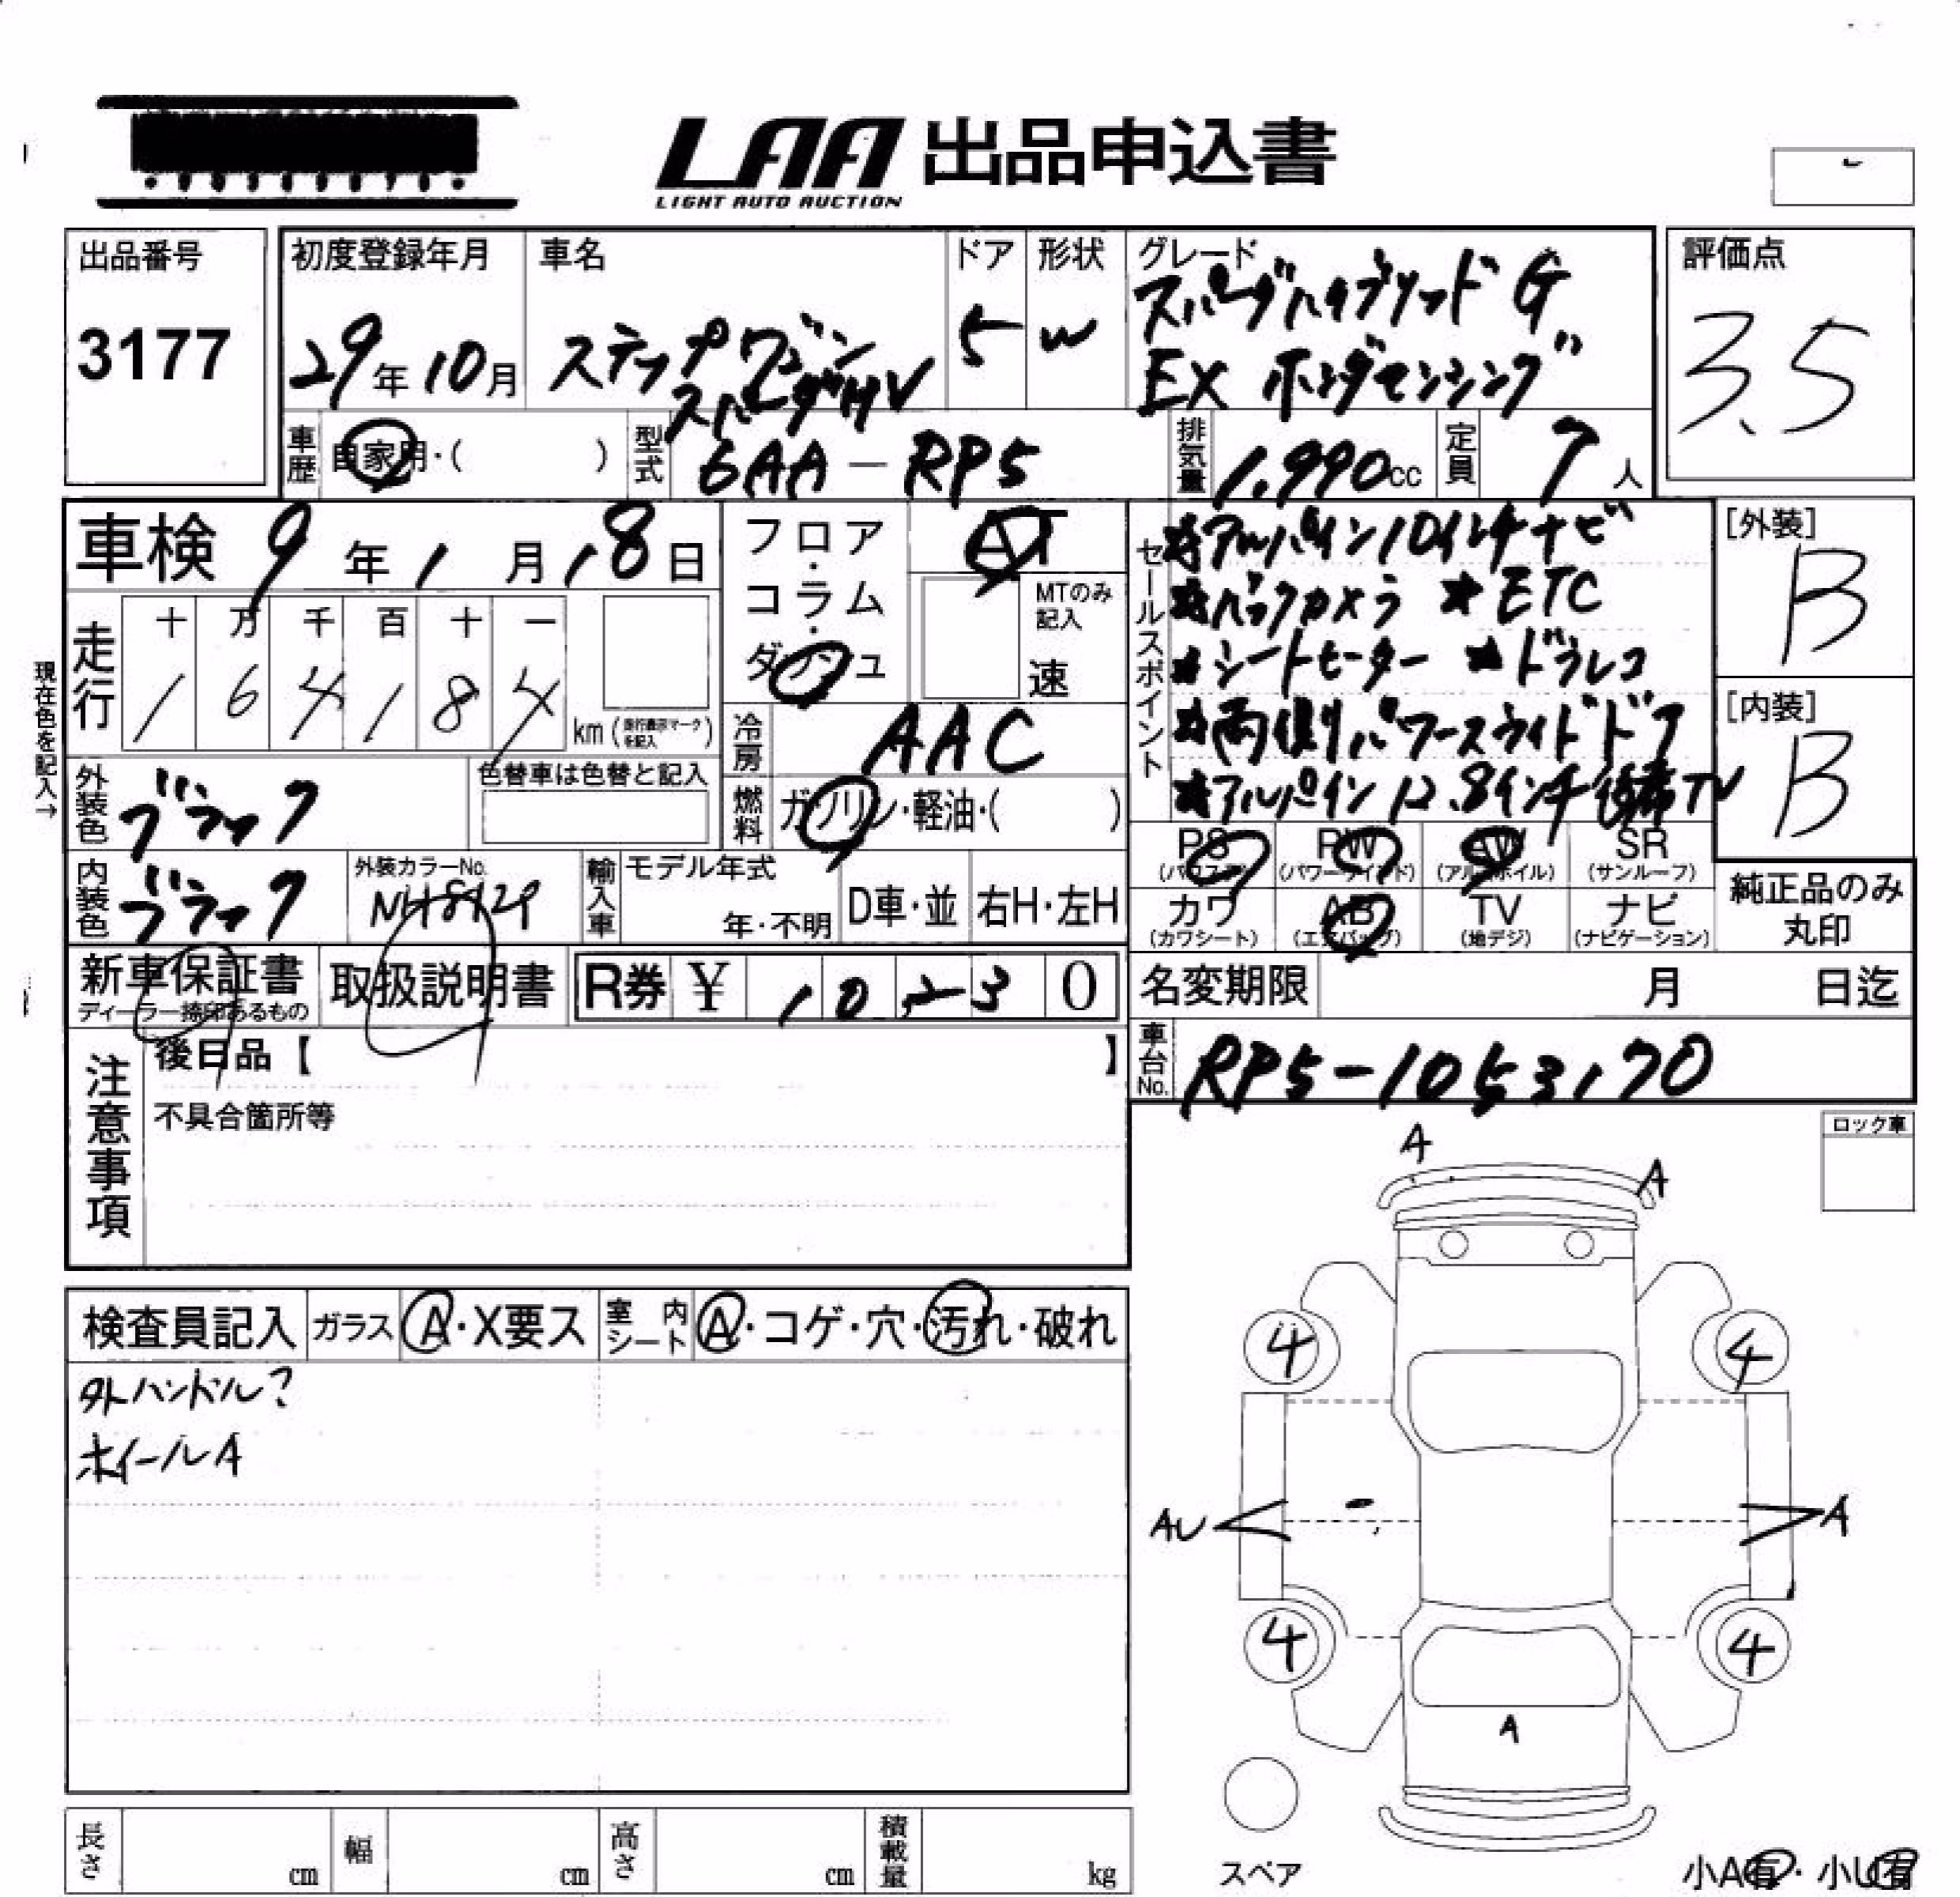 LAA 出品申込書
LIGHT AUTO AUCTION
出品番号
3177
初度登録年月
29年10月
車名
ステップワゴン
スパーダHV
ドア
5
形状
W
グレード
スパーダハイブリッド G
EX ホンダセンシング
評価点
3.5
車歴 自家用・( )
型式 6AA-RP5
排気量 1.990cc
定員 7人
車検 9年1月18日
フロア・コラム・ダッシュ
AT
MTのみ記入
速
セールスポイント
★アルパイン10インチナビ
★バックカメラ ★ETC
★シートヒーター ★ドラレコ
★両側パワースライドドア
★アルパイン12.8インチ後席TV
[外装]
B
[内装]
B
現在色を記入→
走行
十 万 千 百 十 一
1 6 4 1 8 4
km(走行表示マークを記入)
冷房 AAC
外装色 ブラック
色替車は色替と記入
燃料 ガソリン・軽油・( )
内装色 ブラック
外装カラーNo.
輸入車
モデル年式
年・不明
D車・並
右H・左H
PS (パワステ)
PW (パワーウインド)
AW (アルミホイル)
SR (サンルーフ)
カワ (カワシート)
AB (エアバッグ)
TV (地デジ)
ナビ (ナビゲーション)
純正品のみ
丸印
新車保証書
ディーラー捺印あるもの
取扱説明書
R券 ¥ 10,230
名変期限 月 日迄
車台No. RP5-1053170
注意事項
後日品【 】
不具合箇所等
ロック車
検査員記入
ガラス A・X要ス
室内シート A・コゲ・穴・汚れ・破れ
外ハンドル?
ホイールA
A
A
4
4
AU
A
4
4
A
スペア
小A有・小U有
長さ cm
幅 cm
高さ cm
積載量 kg